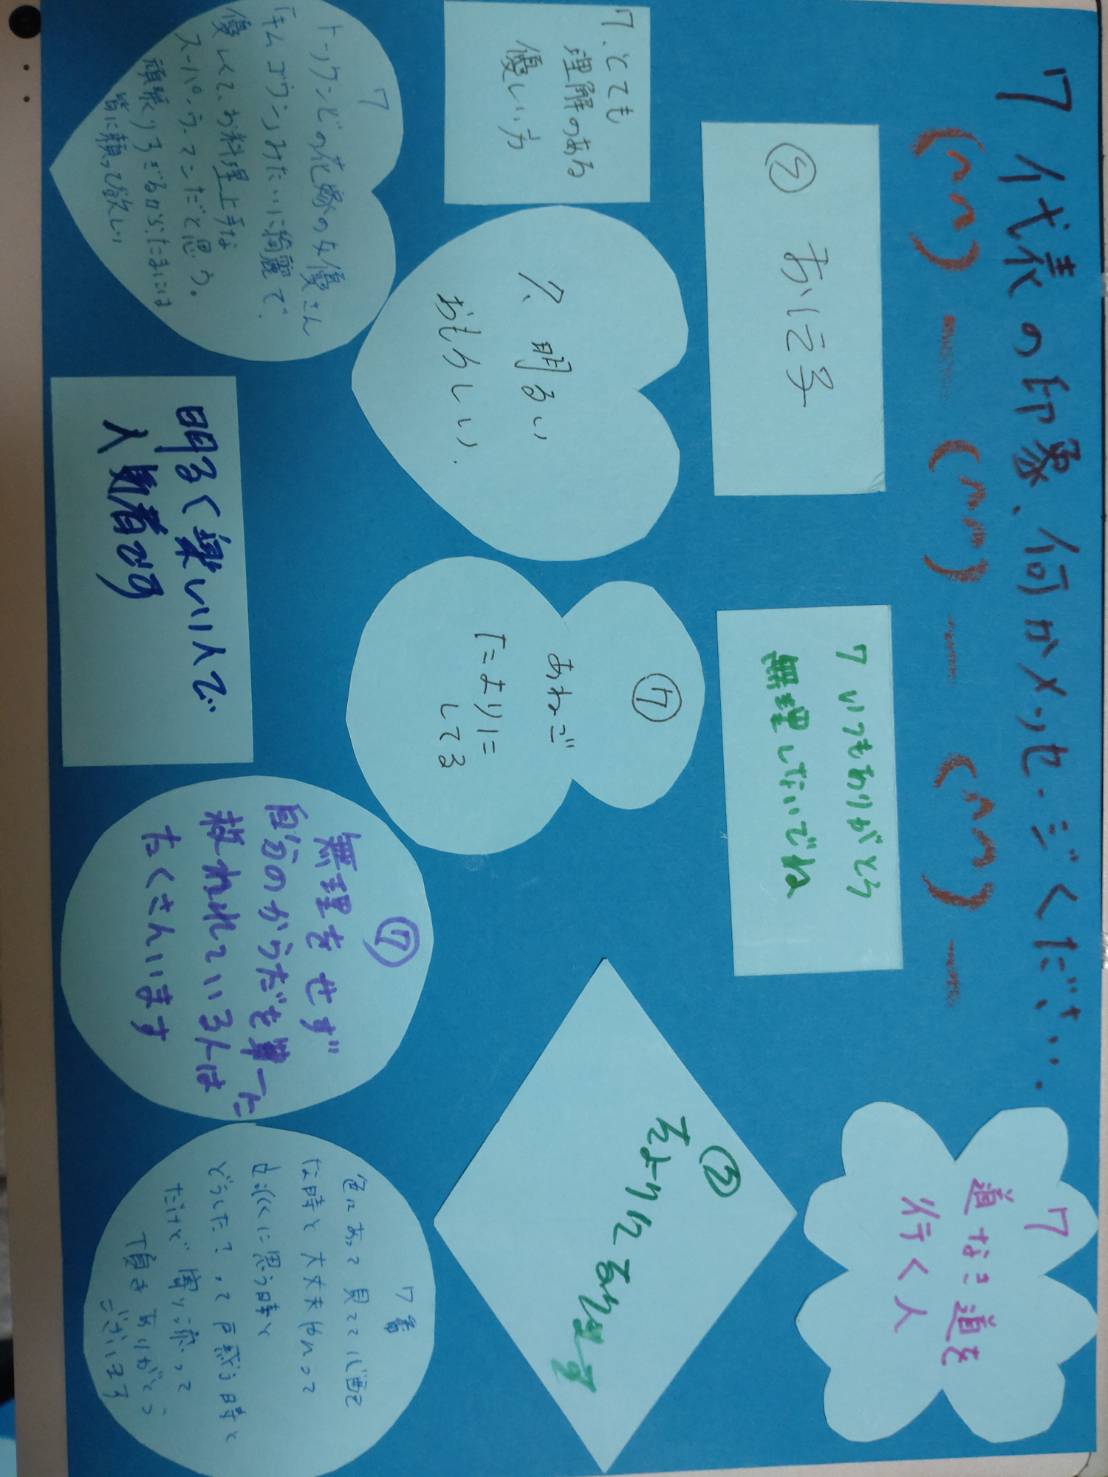 7 代表の印象、何かメッセージください….
7 道なき道を
行く人
7 いつもありがとう
無理しないでね
⑦ おに子
⑦
たよりにしてます
⑦
あねご
たよりに
してる
7、明るい
おもろしい.
7、とても
理解のある
優しい方
7番
色々あって見てて心配
な時と大丈夫かなって
思う時と
どうした？って戸惑う時と
だけど寄り添って
頂きありがとう
ございます
⑦
無理をせず
自分のからだを第一に
救われている人は
たくさんいます
明るく楽しい人で
人気者です
7
トッケビの花嫁の女優さん
「キムゴウン」みたいに綺麗で、
優しくて、お料理上手な
スーパーウーマンだと思う。
頑張りすぎるから、たまには
皆に頼って欲しい